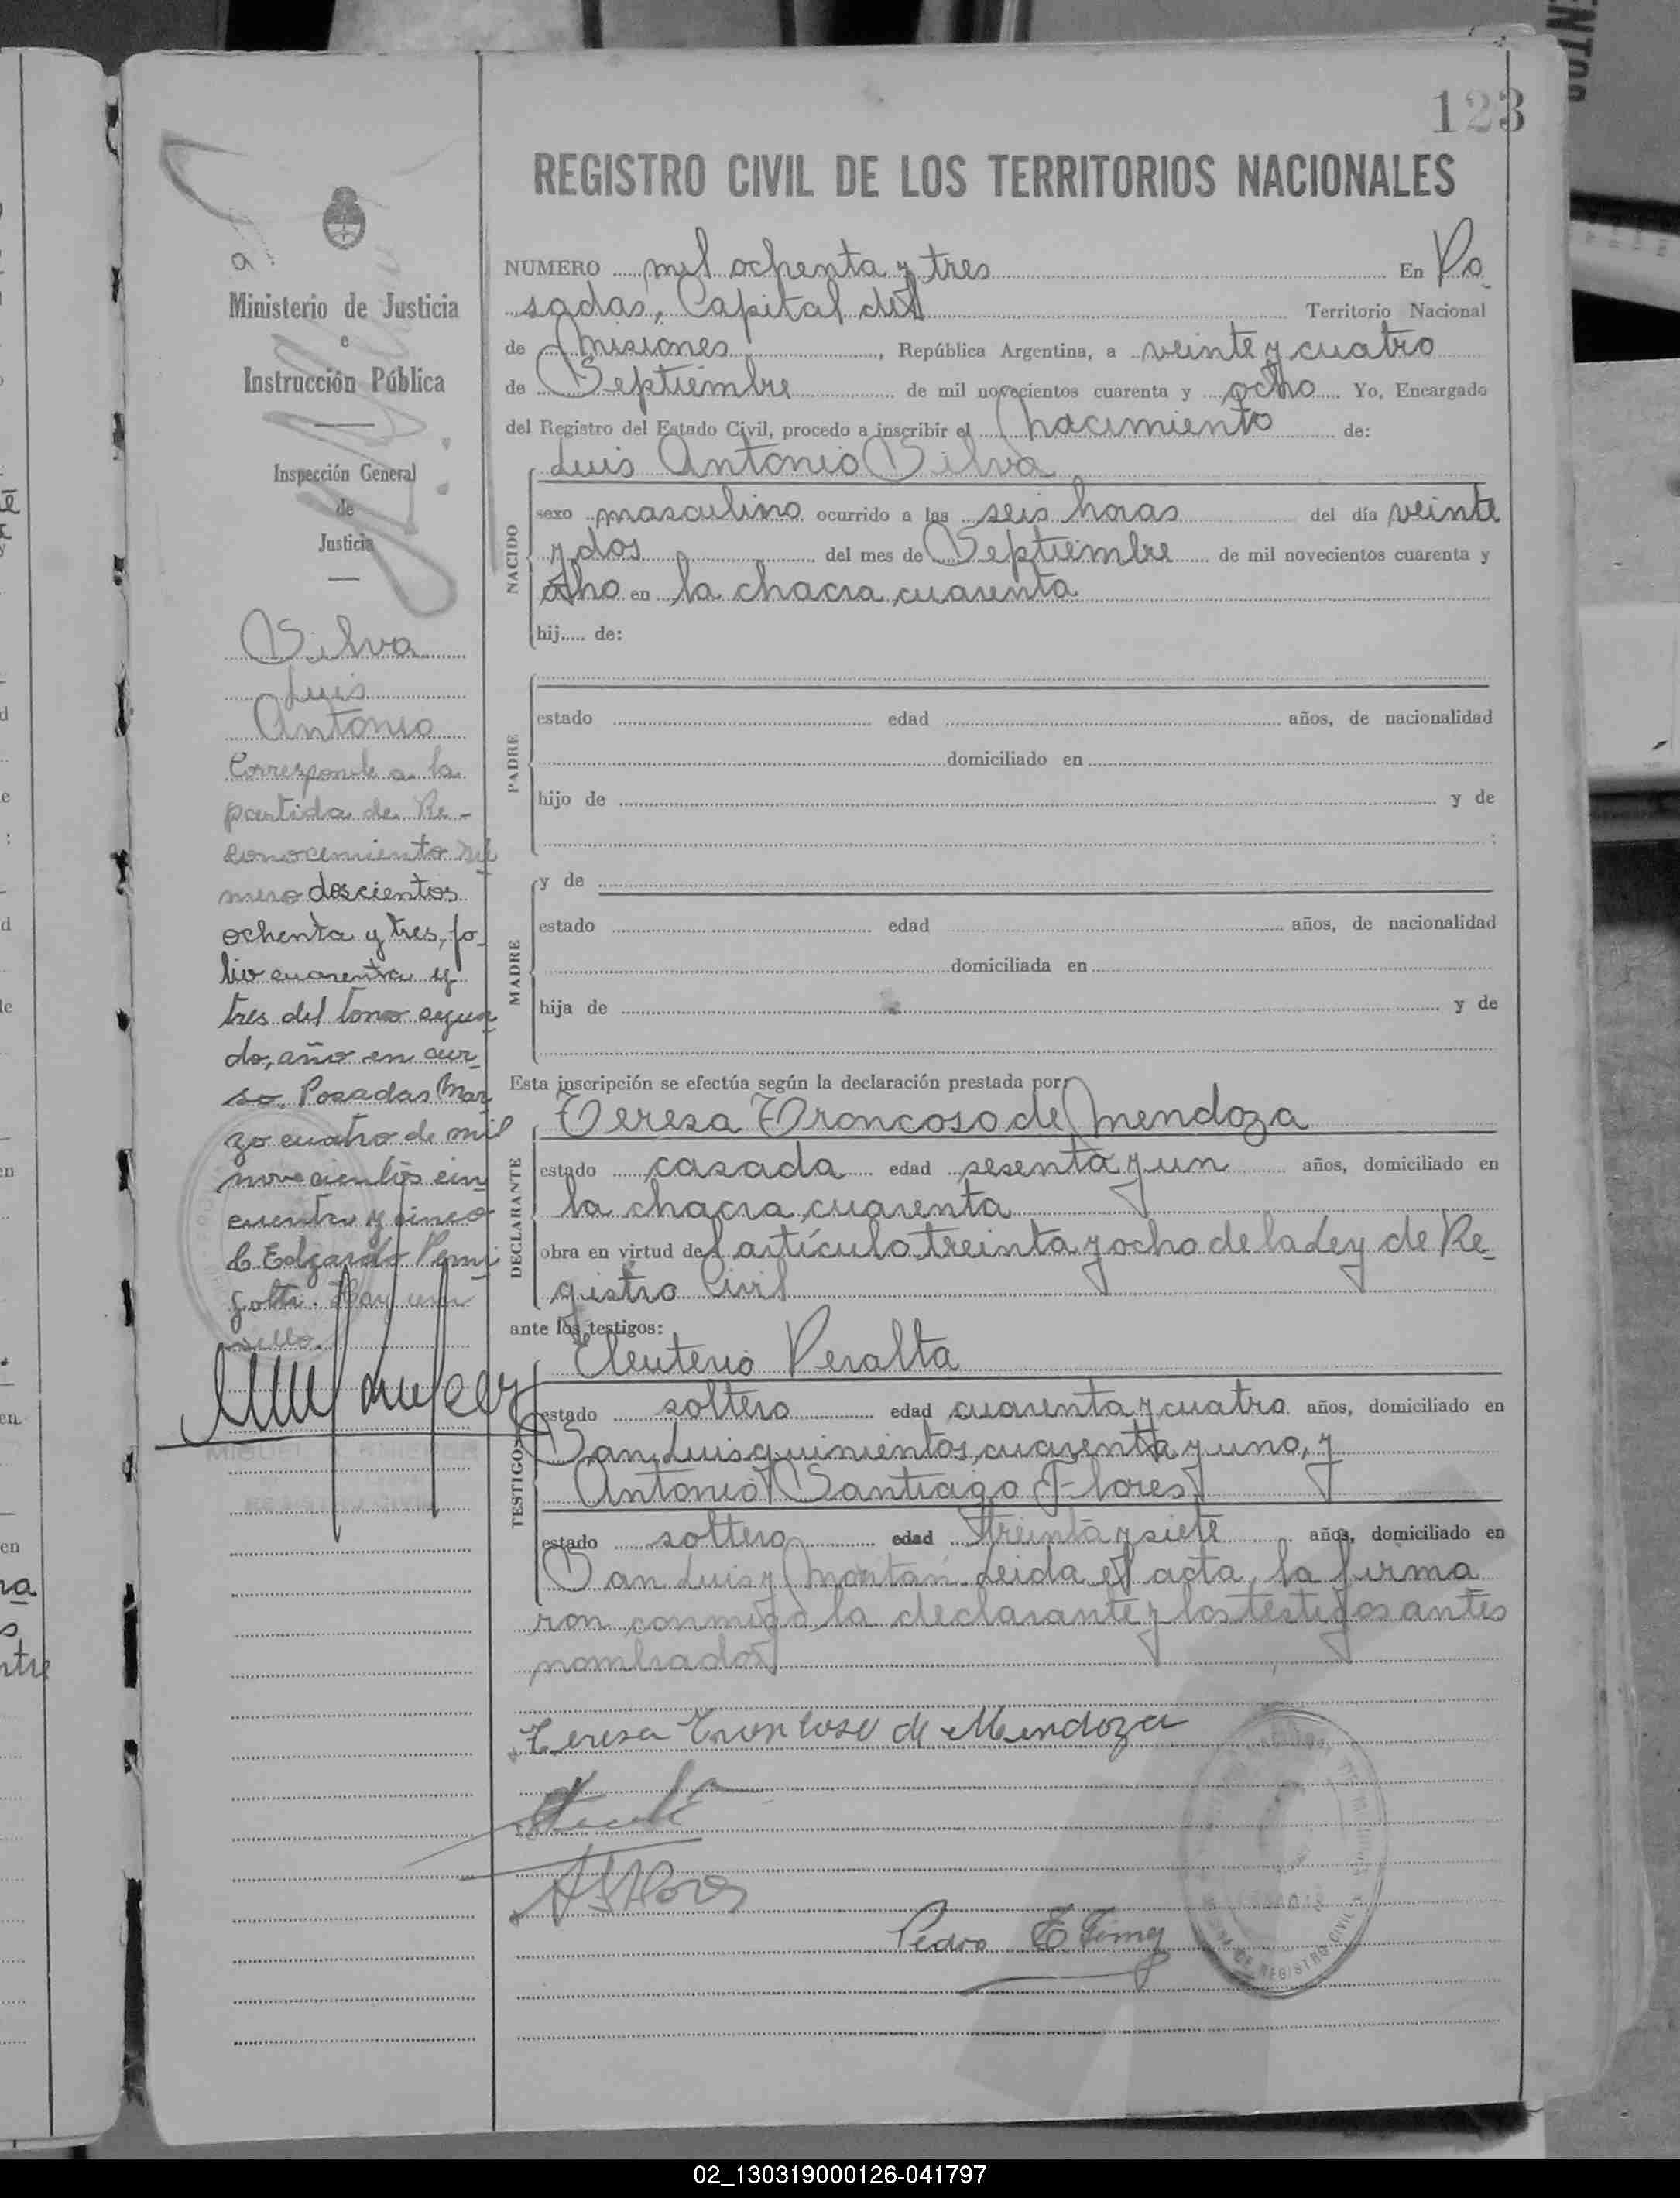 123
REGISTRO CIVIL DE LOS TERRITORIOS NACIONALES
NUMERO mil ochenta y tres En Po
sadas, Capital del Territorio Nacional
de Misiones, República Argentina, a veinte y cuatro
de Septiembre de mil novecientos cuarenta y ocho Yo, Encargado
del Registro del Estado Civil, procedo a inscribir el nacimiento de:
NACIDO
Luis Antonio Silva
sexo masculino ocurrido a las seis horas del día veinte
y dos del mes de Septiembre de mil novecientos cuarenta y
ocho en la chacra cuarenta
hij..... de:
PADRE
estado edad años, de nacionalidad
domiciliado en
hijo de y de
:
MADRE
y de
estado edad años, de nacionalidad
domiciliada en
hija de y de
Esta inscripción se efectúa según la declaración prestada por:
DECLARANTE
Teresa Troncoso de Mendoza
estado casada edad sesenta y un años, domiciliado en
la chacra cuarenta
obra en virtud del artículo treinta y ocho de la Ley de Re-
gistro Civil
ante los testigos:
TESTIGOS
Eleuterio Peralta
estado soltero edad cuarenta y cuatro años, domiciliado en
San Luis quinientos cuarenta y uno, y
Antonio Santiago Flores
estado soltero edad treinta y siete años, domiciliado en
San Luis y Montán. Leida el acta, la firma
ron conmigo, la declarante y los testigos antes
nombrados
Teresa Troncoso de Mendoza
A S Flores
Pedro E
DE REGISTRO CIVIL
a
Ministerio de Justicia
e
Instrucción Pública
Inspección General
de
Justicia
Silva
Luis
Antonio
Corresponde a la
partida de Re-
conocimiento nú
mero doscientos
ochenta y tres, fo-
lio cuarenta y
tres del tomo segun
do, año en cur-
so. Posadas Mar
zo cuatro de mil
novecientos cin
cuenta y cinco
C. Edgardo
Hay un
sello.
02_130319000126-041797